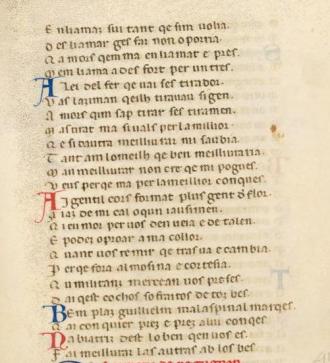 E nliamar sui tant qe fin uolia.
D es liamar ges far non o poiria.
Q a mors qem ma en liamat e pres.
M em liama ades fort per un tres.
A lei del fer qe uai ses tirador.
V as lariman qeilh tirauau si gen.
A mors qim sap tirar ses tiramen.
M as tirat ma si uals per la millor.
Q e si dautra meilliurar mi sabia.
T ant am lo meilh qe ben meilluraria.
M an meillurar non cre qe mi pogues.
V eus per qe ma per la meillor conques.
A i gentil cors format plus gent d flor.
A iaz de mi cal oqun iausimen.
Q ieu mor per uos den ueia e de talen.
E podez o proar a ma collor.
Q uant uos remir qe tras ua e cambia.
P er qe fora almosina e cortesia.
Q umilitaz merceian uos preses.
D aiqest cochos sofraitos de toz bes.
B em plaz guillielm malaspinal marqes.
Q ai con quier prez e prez aliu conqes.
N a biatriz dest lo ben qen uos es.
F ai meillurar las autras ab los bes.